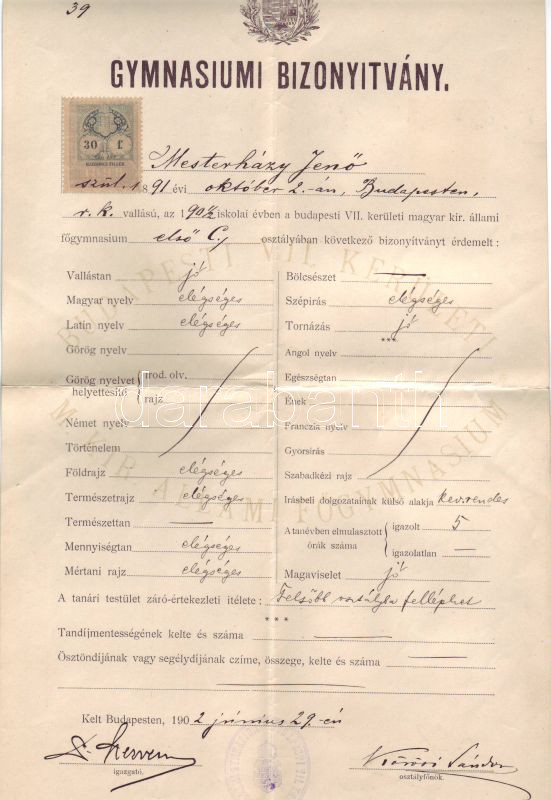 39
GYMNASIUMI BIZONYITVÁNY.
30 f
Mesterházy Jenő
szül. 1891 évi október 2.-án, Budapesten,
r. k. vallású, az 1901/2 iskolai évben a budapesti VII. kerületi magyar kir. állami
főgymnasium első C. osztályában következő bizonyítványt érdemelt :
Vallástan jó
Magyar nyelv elégséges
Latin nyelv elégséges
Görög nyelv
Görög nyelvet helyettesítő irod. olv. rajz
Német nyelv
Történelem
Földrajz elégséges
Természetrajz elégséges
Természettan —
Mennyiségtan elégséges
Mértani rajz elégséges
Bölcsészet —
Szépirás elégséges
Tornázás jó
***
Angol nyelv
Egészségtan
Ének
Franczia nyelv
Gyorsírás
Szabadkézi rajz
Irásbeli dolgozatainak külső alakja kevrendes
A tanévben elmulasztott órák száma igazolt 5
igazolatlan —
Magaviselet jó
A tanári testület záró-értekezleti itélete : Felsőbb osztályba felléphet
***
Tandíjmentességének kelte és száma —
Ösztöndíjának vagy segélydíjának czíme, összege, kelte és száma —
Kelt Budapesten, 1902 június 29.-én
igazgató.
Kőrösi Sándor
osztályfőnök.
BUDAPESTI VII. KERÜLETI
M. KIR. ÁLLAMI FŐGYMNASIUM
darabanth